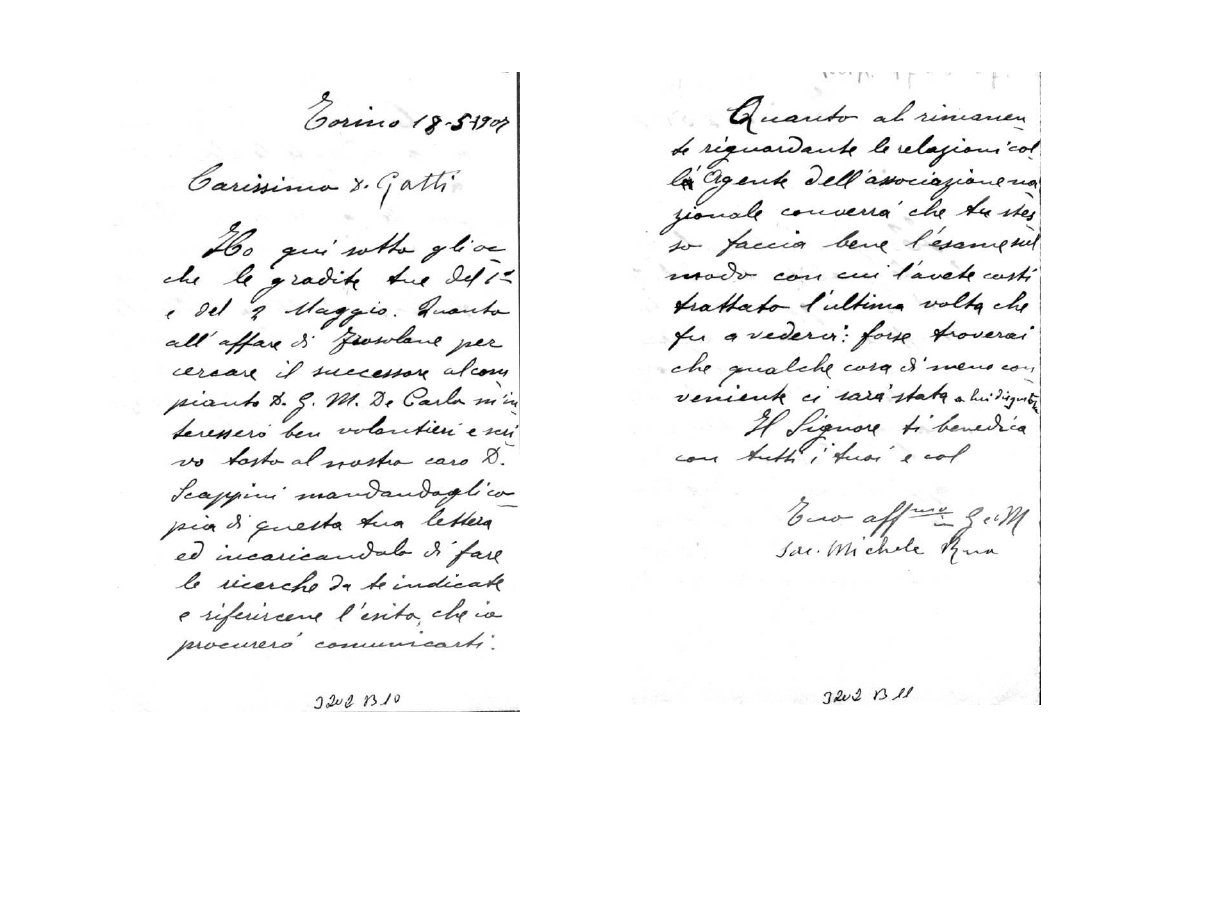 Torino 18-5-1907
Carissimo D. Gatti
Ho qui sotto gli oc-
che le gradite tue del 1°
e del 2 Maggio. Quanto
all'affare di Frosolone per
cercare il successore al com
pianto D. G. M. De Carlo m'in
teresserò ben volontieri e scri
vo tosto al nostro caro D.
Scappini mandandogli co-
pia di questa tua lettera
ed incaricandolo di fare
le ricerche da te indicate
e riferircene l'esito, che io
procurerò comunicarti.
3202 B 10
Quanto al rimanen
te riguardante le relazioni col
l'Agente dell'associazione na
zionale converrà che tu stes
so faccia bene l'esame sul
modo con cui l'avete costì
trattato l'ultima volta che
fu a vedervi: forse troverai
che qualche cosa di meno con
veniente ci sarà stata a lui
Il Signore ti benedica
con tutti i tuoi e col
Tuo aff.mo in G. e M
Sac. Michele Rua
3202 B 11